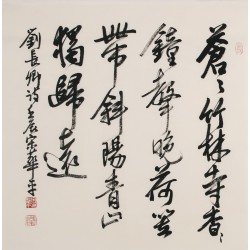 蒼〻竹林寺杳〻
鐘聲晚荷笠
帶斜陽青山
獨歸遠
劉長卿詩壬辰宗華平